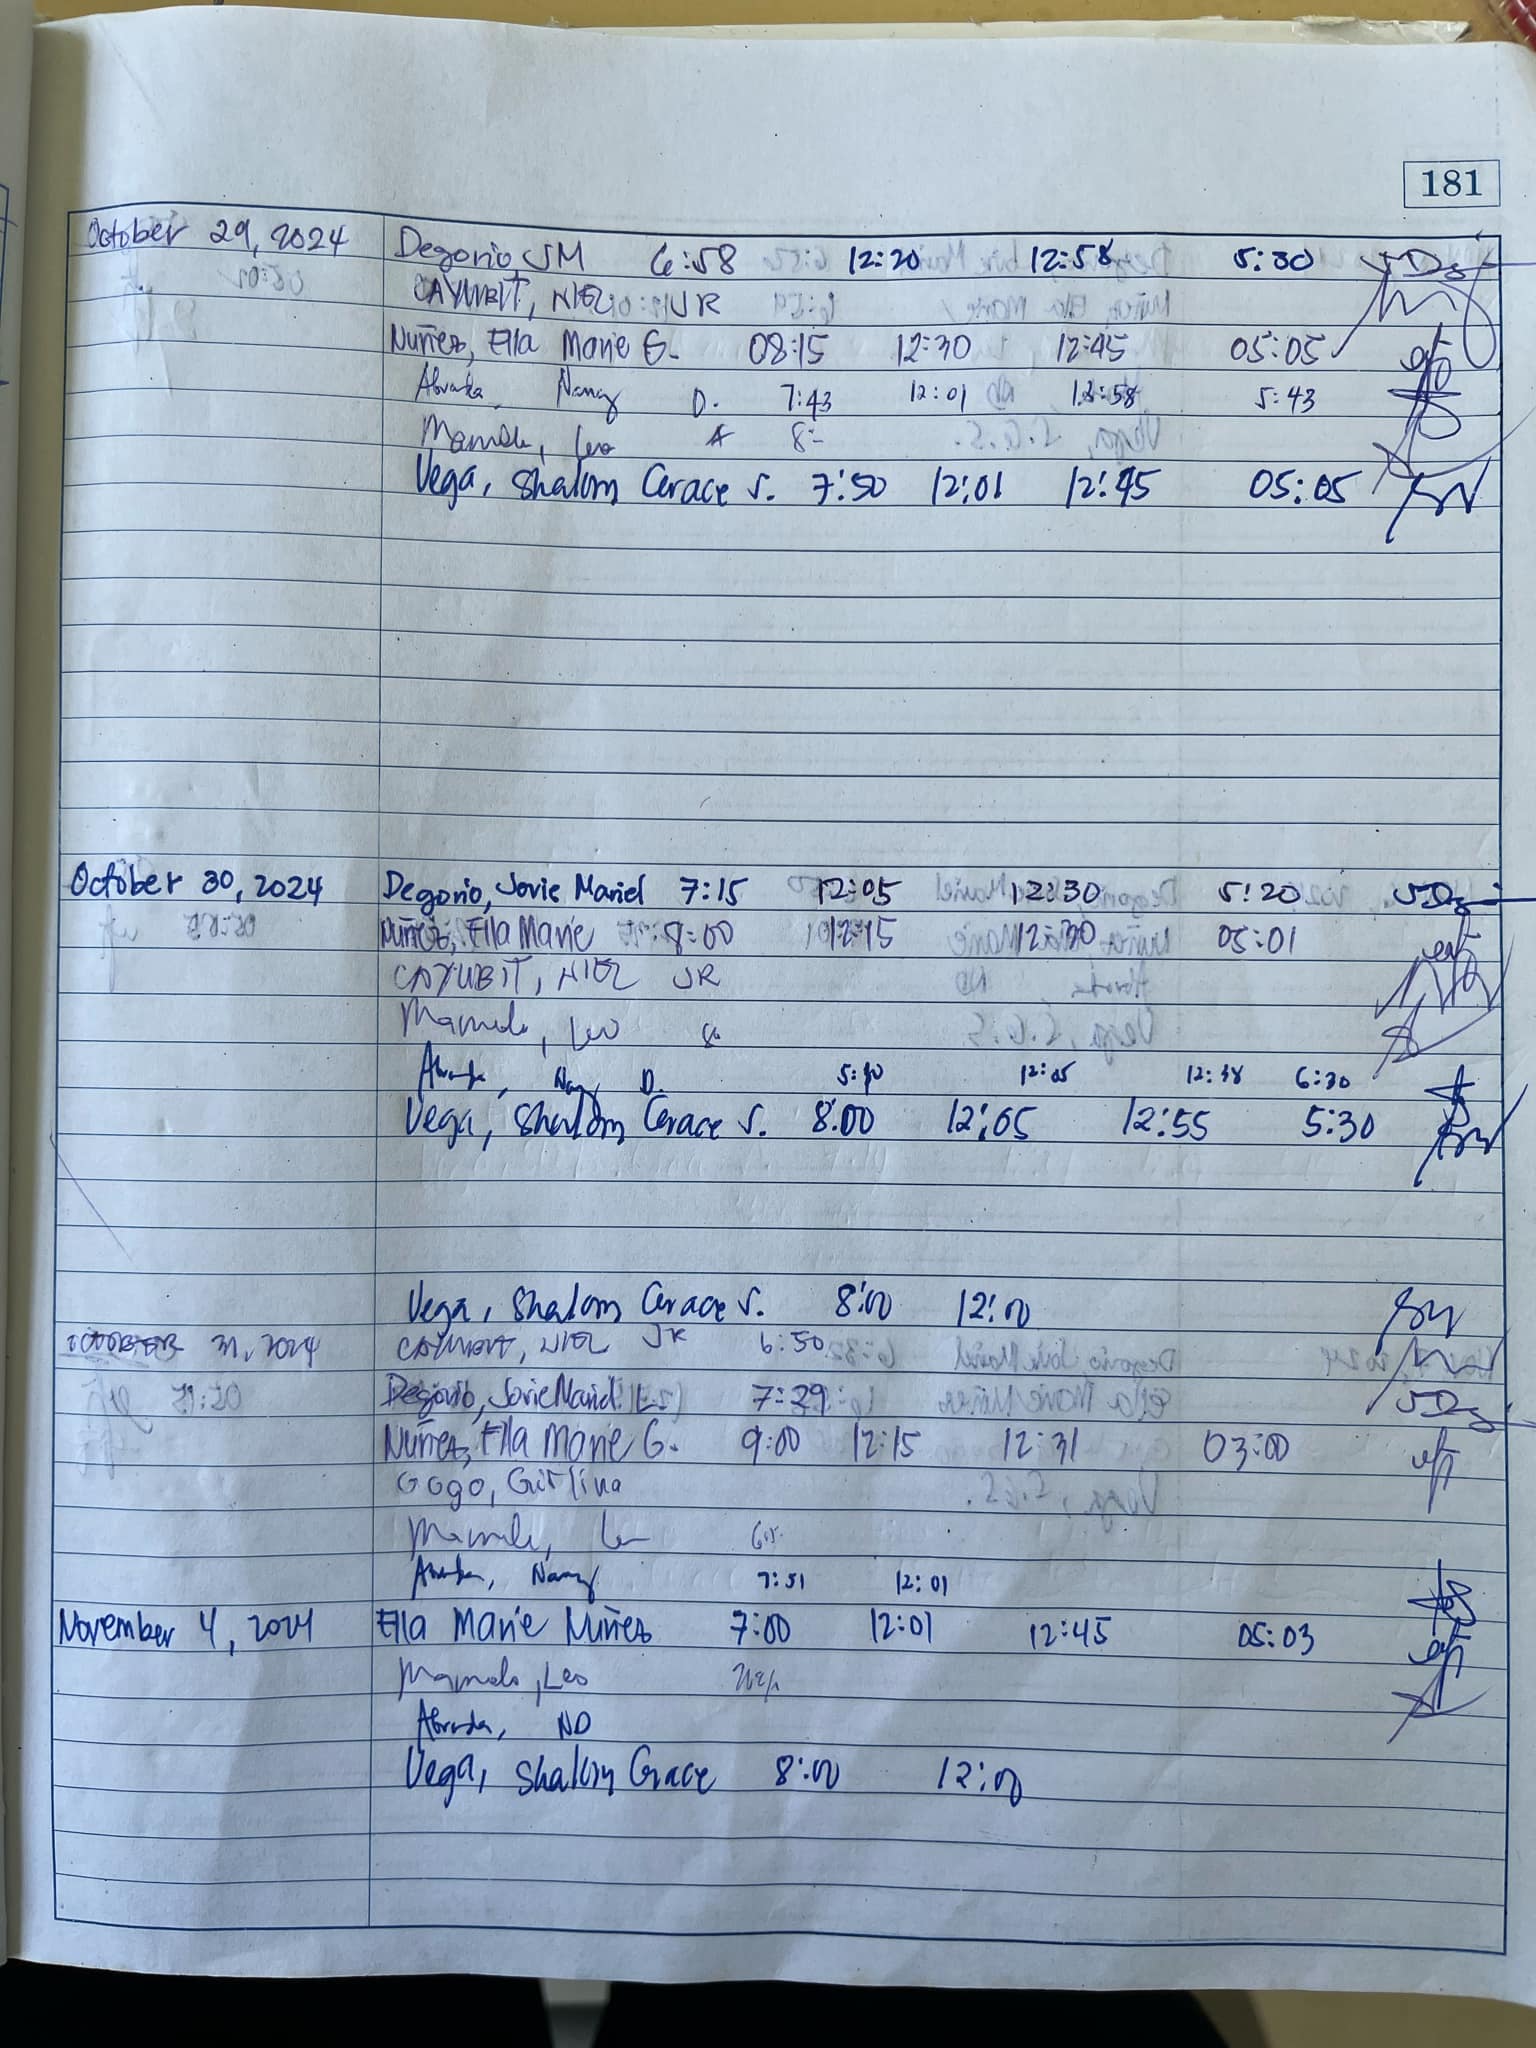 181
October 29, 2024 Degorio, JM 6:58 12:20 12:58 5:30
CAYUBIT, NIEL JR
Nuñez, Ella Marie G. 08:15 12:30 12:45 05:05
Abrada, Nancy D. 7:43 12:01 12:58 5:43
Mamolo, Leo 8:-
Vega, Shalom Grace S. 7:50 12:01 12:45 05:05
October 30, 2024 Degorio, Jovie Mariel 7:15 12:05 12:30 5:20
Nuñez, Ella Marie 8:00 12:15 12:30 05:01
CAYUBIT, NIEL JR
Mamolo, Leo
Abrada, Nancy D. 12:05 12:38 6:30
Vega, Shalom Grace S. 8:00 12:05 12:55 5:30
Vega, Shalom Grace S. 8:00 12:00
OCTOBER 31, 2024 CAYUBIT, NIEL JR 6:50
Degorio, Jovie Mariel L. 7:29
Nuñez, Ella Marie G. 9:00 12:15 12:31 03:00
Gogo, Girlina
Mamolo, Leo
Abrada, Nancy 7:51 12:01
November 4, 2024 Ella Marie Nuñez 7:00 12:01 12:45 05:03
Mamolo, Leo
Abrada, ND
Vega, Shalom Grace 8:00 12:00